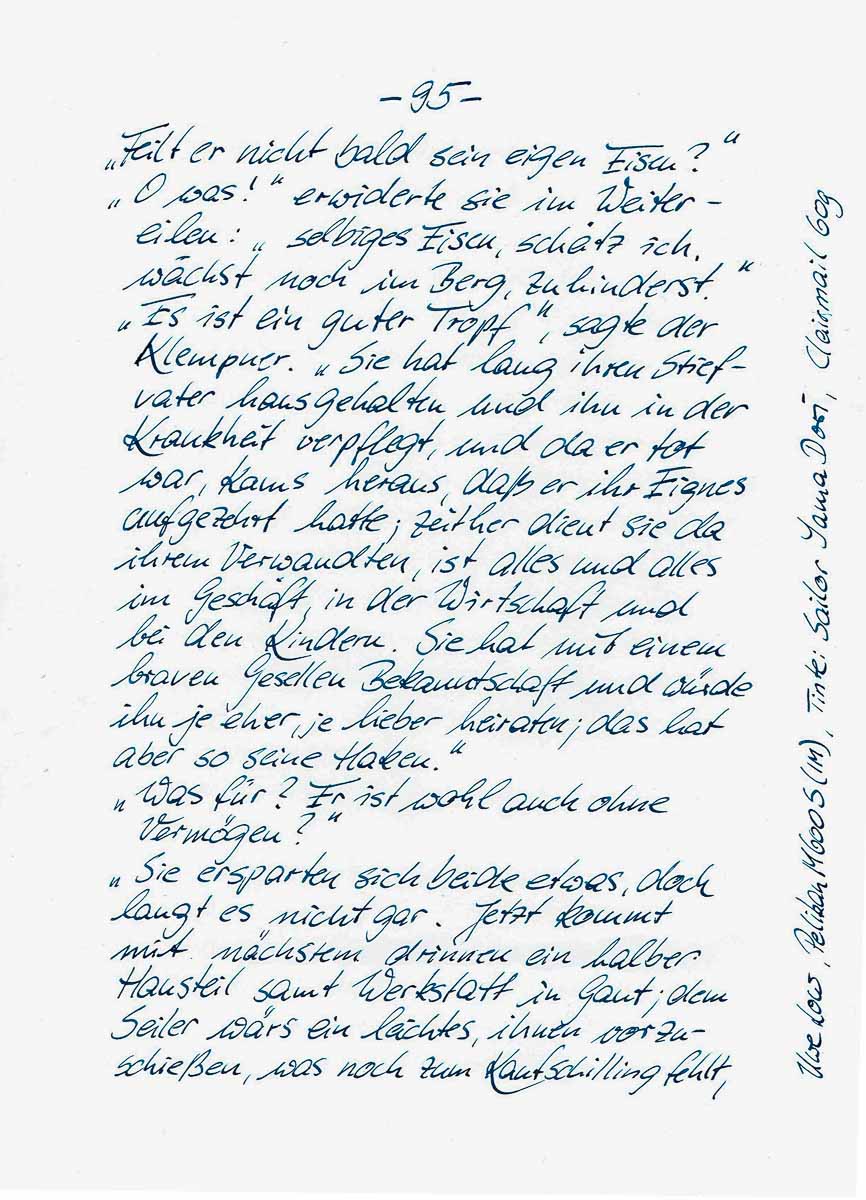 - 95 -
„Feilt er nicht bald sein eigen Eisen?"
„O was!" erwiderte sie im Weiter-
eilen: „selbiges Eisen, schätz ich,
wächst noch im Berg, zuhinderst."
„Es ist ein guter Tropf", sagte der
Klempner. „Sie hat lang ihren Stief-
vater hausgehalten und ihn in der
Krankheit verpflegt, und da er tot
war, kams heraus, daß er ihr Eignes
aufgezehrt hatte; zeither dient sie da
ihrem Verwandten, ist alles und alles
im Geschäft, in der Wirtschaft und
bei den Kindern. Sie hat mit einem
braven Gesellen Bekanntschaft und würde
ihn je eher, je lieber heiraten; das hat
aber so seine Haken."
„Was für? Er ist wohl auch ohne
Vermögen?"
„Sie ersparten sich beide etwas, doch
langt es nicht gar. Jetzt kommt
mit nächstem drinnen ein halber
Hausteil samt Werkstatt in Gant; dem
Seiler wärs ein leichtes, ihnen vorzu-
schießen, was noch zum Kaufschilling fehlt,
Uwe, Pelikan M600 S (IM), Tinte: Sailor Yama Dori, Clairmail 60g